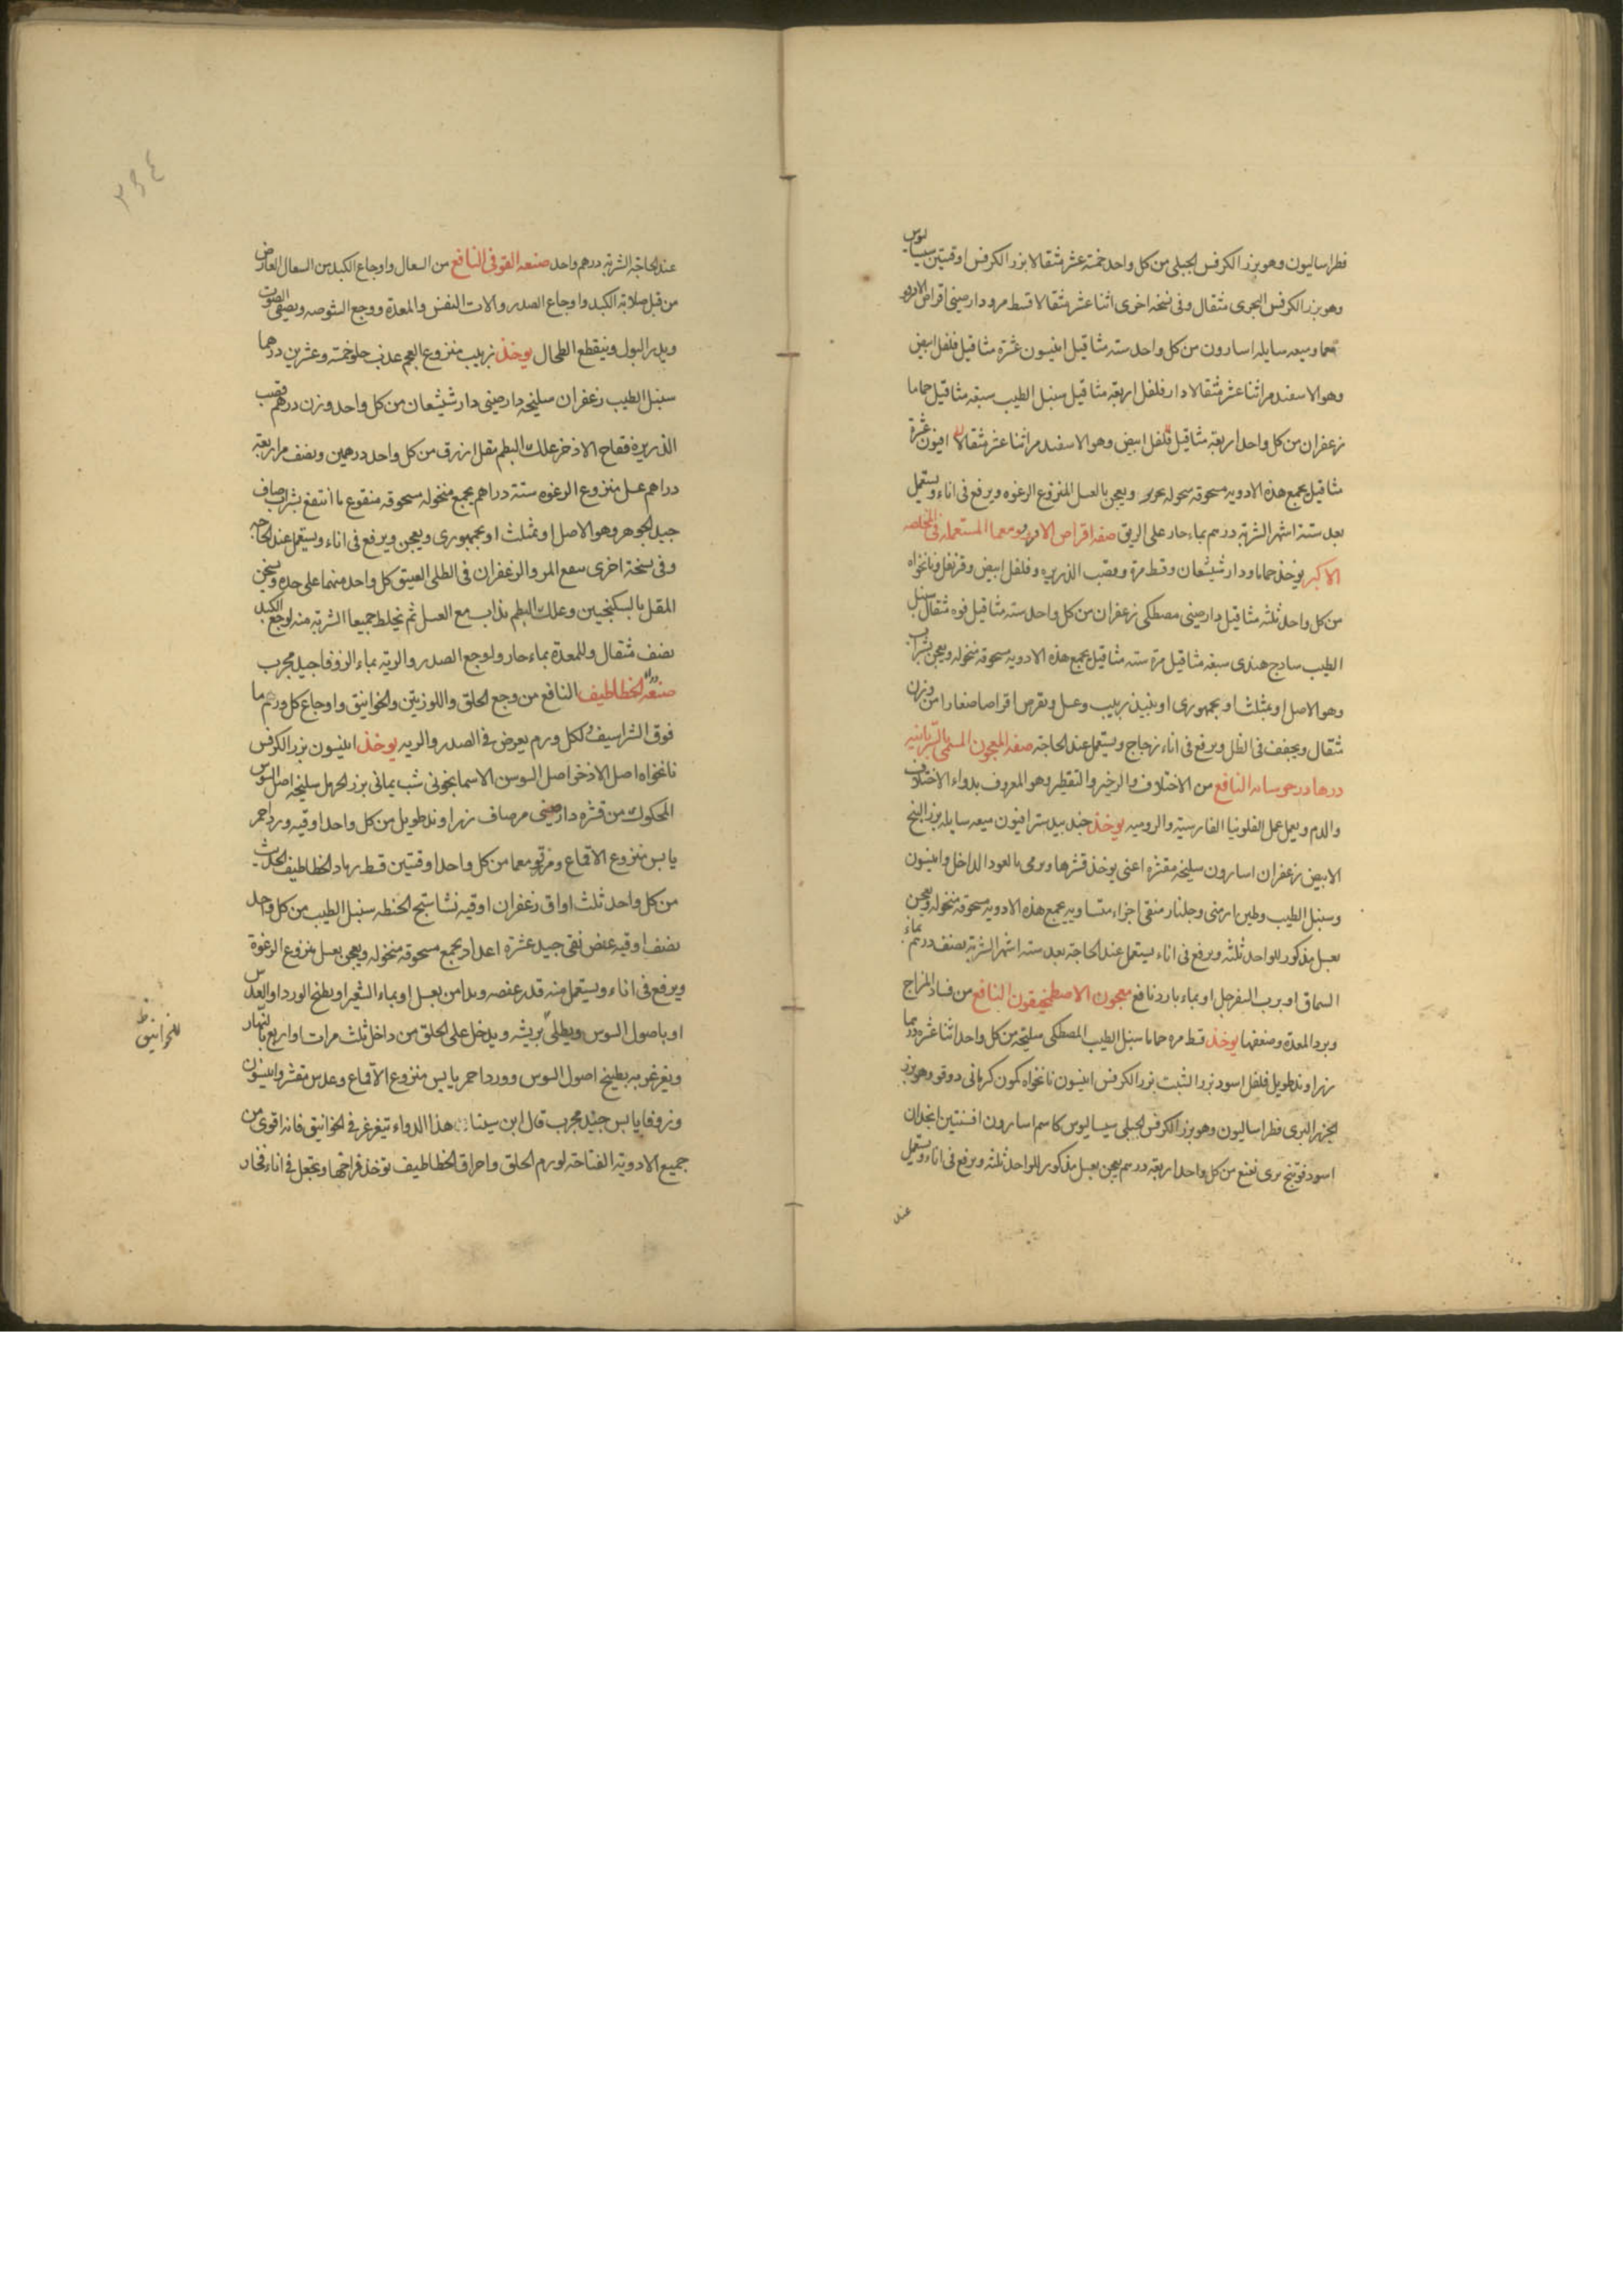 فطراساليون وهو بزر الكرفس الجبلى من كل واحد خمسة عشر مثقالا بزر الكرفس اوقيتين سيساليوس
وهو بزر الكرفس البحرى مثقال وفى نسخه اخرى اثنا عشر مثقالا قسط مر ودارصينى اقراص الاندرو
معما وميعه سايله اسارون من كل واحد سته مثاقيل انيسون عشرة مثاقيل فلفل ابيض
وهو الاسفند مر اثنا عشر مثقالا دار فلفل اربعة مثاقيل سنبل الطيب سبعة مثاقيل حماما
زعفران من كل واحد اربعة مثاقيل فلفل ابيض وهو الاسفند مر اثنا عشر مثقالا افيون عشرة
مثاقيل يجمع هذه الادويه مسحوقه منحوله بحرير ويعجن بالعسل المنزوع الرغوه ويرفع فى اناء ويستعمل
بعد ستة اشهر الشربة درهم بماء حار على الريق صفه اقراص الاندروومعما المستعمله فى المخلصه
الاكبر يوخذ حماما ودار شيشعان وقسط مرة وقصب الذريره وفلفل ابيض وقرنفل ونانخواه
من كل واحد ثلثه مثاقيل دارصينى مصطكى زعفران من كل واحد سته مثاقيل فوه مثقال سنبل
الطيب سادج هندى سبعة مثاقيل مرة سته مثاقيل يجمع هذه الادويه مسحوقه منخوله ويعجن بشراب
وهو الاصل او بمثلث او بجمهورى او بنبيذ زبيب وعسل ويقرص اقراصا صغارا من وزن
مثقال ويجفف فى الظل ويرفع فى اناء زجاج ويستعمل عند الحاجة صفه المعجون المسمى بالسريانيه
النافع من الاختلاف والزحير والتقطير وهو المعروف بدواء الاختلاف
والدم ويعمل عمل الفلونيا الفارسيه والروميه يوخذ جند بيدستر افيون ميعه سايله بزر البنج
الابيض زعفران اسارون سليخه مقشره اعنى يوخذ قشرها ويرمى بالعود الداخل وانيسون
وسنبل الطيب وطين ارمنى وجلنار منقى اجزاء متساويه يجمع هذه الادويه مسحوقه منخوله ويعجن
بعسل مذكور للواحد ثلثه ويرفع فى اناء يستعمل عند الحاجة بعد سته اشهر الشربة نصف درهم بماء
السماق او برب السفرجل او بماء بارد نافع معجون الاصطمخيقون النافع من فساد المزاج
وبرد المعدة وضعفها يوخذ قسط مره حماما سنبل الطيب المصطكى سليخه من كل واحد اثنا عشره درهما
زراوند طويل فلفل اسود بزر الشبت بزر الكرفس انيسون نانخواه كمون كرمانى دوقو وهو بزر
الجزر البرى فطراساليون وهو بزر الكرفس الجبلى سيساليوس كاسم اسارون افسنتين انجدان
اسود فوتنج برى نعنع من كل واحد اربعة درهم يعجن بعسل مذكور للواحد ثلثه ويرفع فى اناء ويستعمل
عند
عند الحاجة الشربة درهم واحد صنعه القوفى النافع من السعال واوجاع الكبد من السعال العارض
من قبل صلابة الكبد واوجاع الصدر والات النفس والمعدة ووجع الشوصه ويصفى الصوت
ويدر البول وينقطع الطحال يوخذ زبيب منزوع العجم عذب حلو خمسة وعشرين درهما
سنبل الطيب زعفران سليخه دارصينى دار شيشعان من كل واحد وزن درهم قصب
الذريره فقاح الاذخر علك البطم مقل ازرق من كل واحد درهمين ونصف مر اربعة
دراهم عسل منزوع الرغوه ستة دراهم يجمع منخوله مسحوقه منقوع ما انتقع بشراب صاف
جيد الجوهر وهو الاصل او بمثلث او بجمهورى ويعجن ويرفع فى اناء ويستعمل عند الحاجه
وفى نسخة اخرى ينقع المر والزعفران فى الطلى العتيق كل واحد منهما على حده ويسخن
المقل بالسكنجبين وعلك البطم يذاب مع العسل ثم يخلط جميعا الشربة منه لوجع الكبد
نصف مثقال وللمعدة بماء حار ولوجع الصدر والرية بماء الزوفا جيد مجرب
صنعة الخطاطيف النافع من وجع الحلق واللوزتين والخوانيق واوجاع كل ورم ما
فوق الشراسيف ولكل ورم يعرض فى الصدر والريه يوخذ انيسون بزر الكرفس
نانخواه اصل الاذخر اصل السوسن الاسمانجونى شب يمانى بزر الحرمل سليخه اصل السوس
المحكوك من قشره دارصينى مر صاف زراوند طويل من كل واحد اوقيه ورد احمر
يابس منزوع الاقماع وقرقومعما من كل واحد اوقيتين قسط رماد الخطاطيف الحديث
من كل واحد ثلث اواق زعفران اوقيه نشاستج الحنطه سنبل الطيب من كل واحد
نصف اوقيه عفص نقى جيد عشرة اعداد يجمع مسحوقه منخوله ويعجن بعسل منزوع الرغوة
ويرفع فى اناء ويستعمل منه قدر عفصه ويداف بعسل او بماء الشعير او بطبخ الورد او العدس
او باصول السوس ويطلى بريشه ويدخل على الحلق من داخل ثلث مرات او اربع بالنهار
ويغرغر به بطبيخ اصول السوس وورد احمر يابس منزوع الاقماع وعدس مقشر وانيسون
وزوفا يابس جيد مجرب قال ابن سينا هذا الدواء يتغرغر فى الخوانيق فانه اقوى من
جميع الادوية الفتاحة لورم الحلق واحراق الخطاطيف توخذ فراخها وتجعل فى اناء فخار
للخوانيق